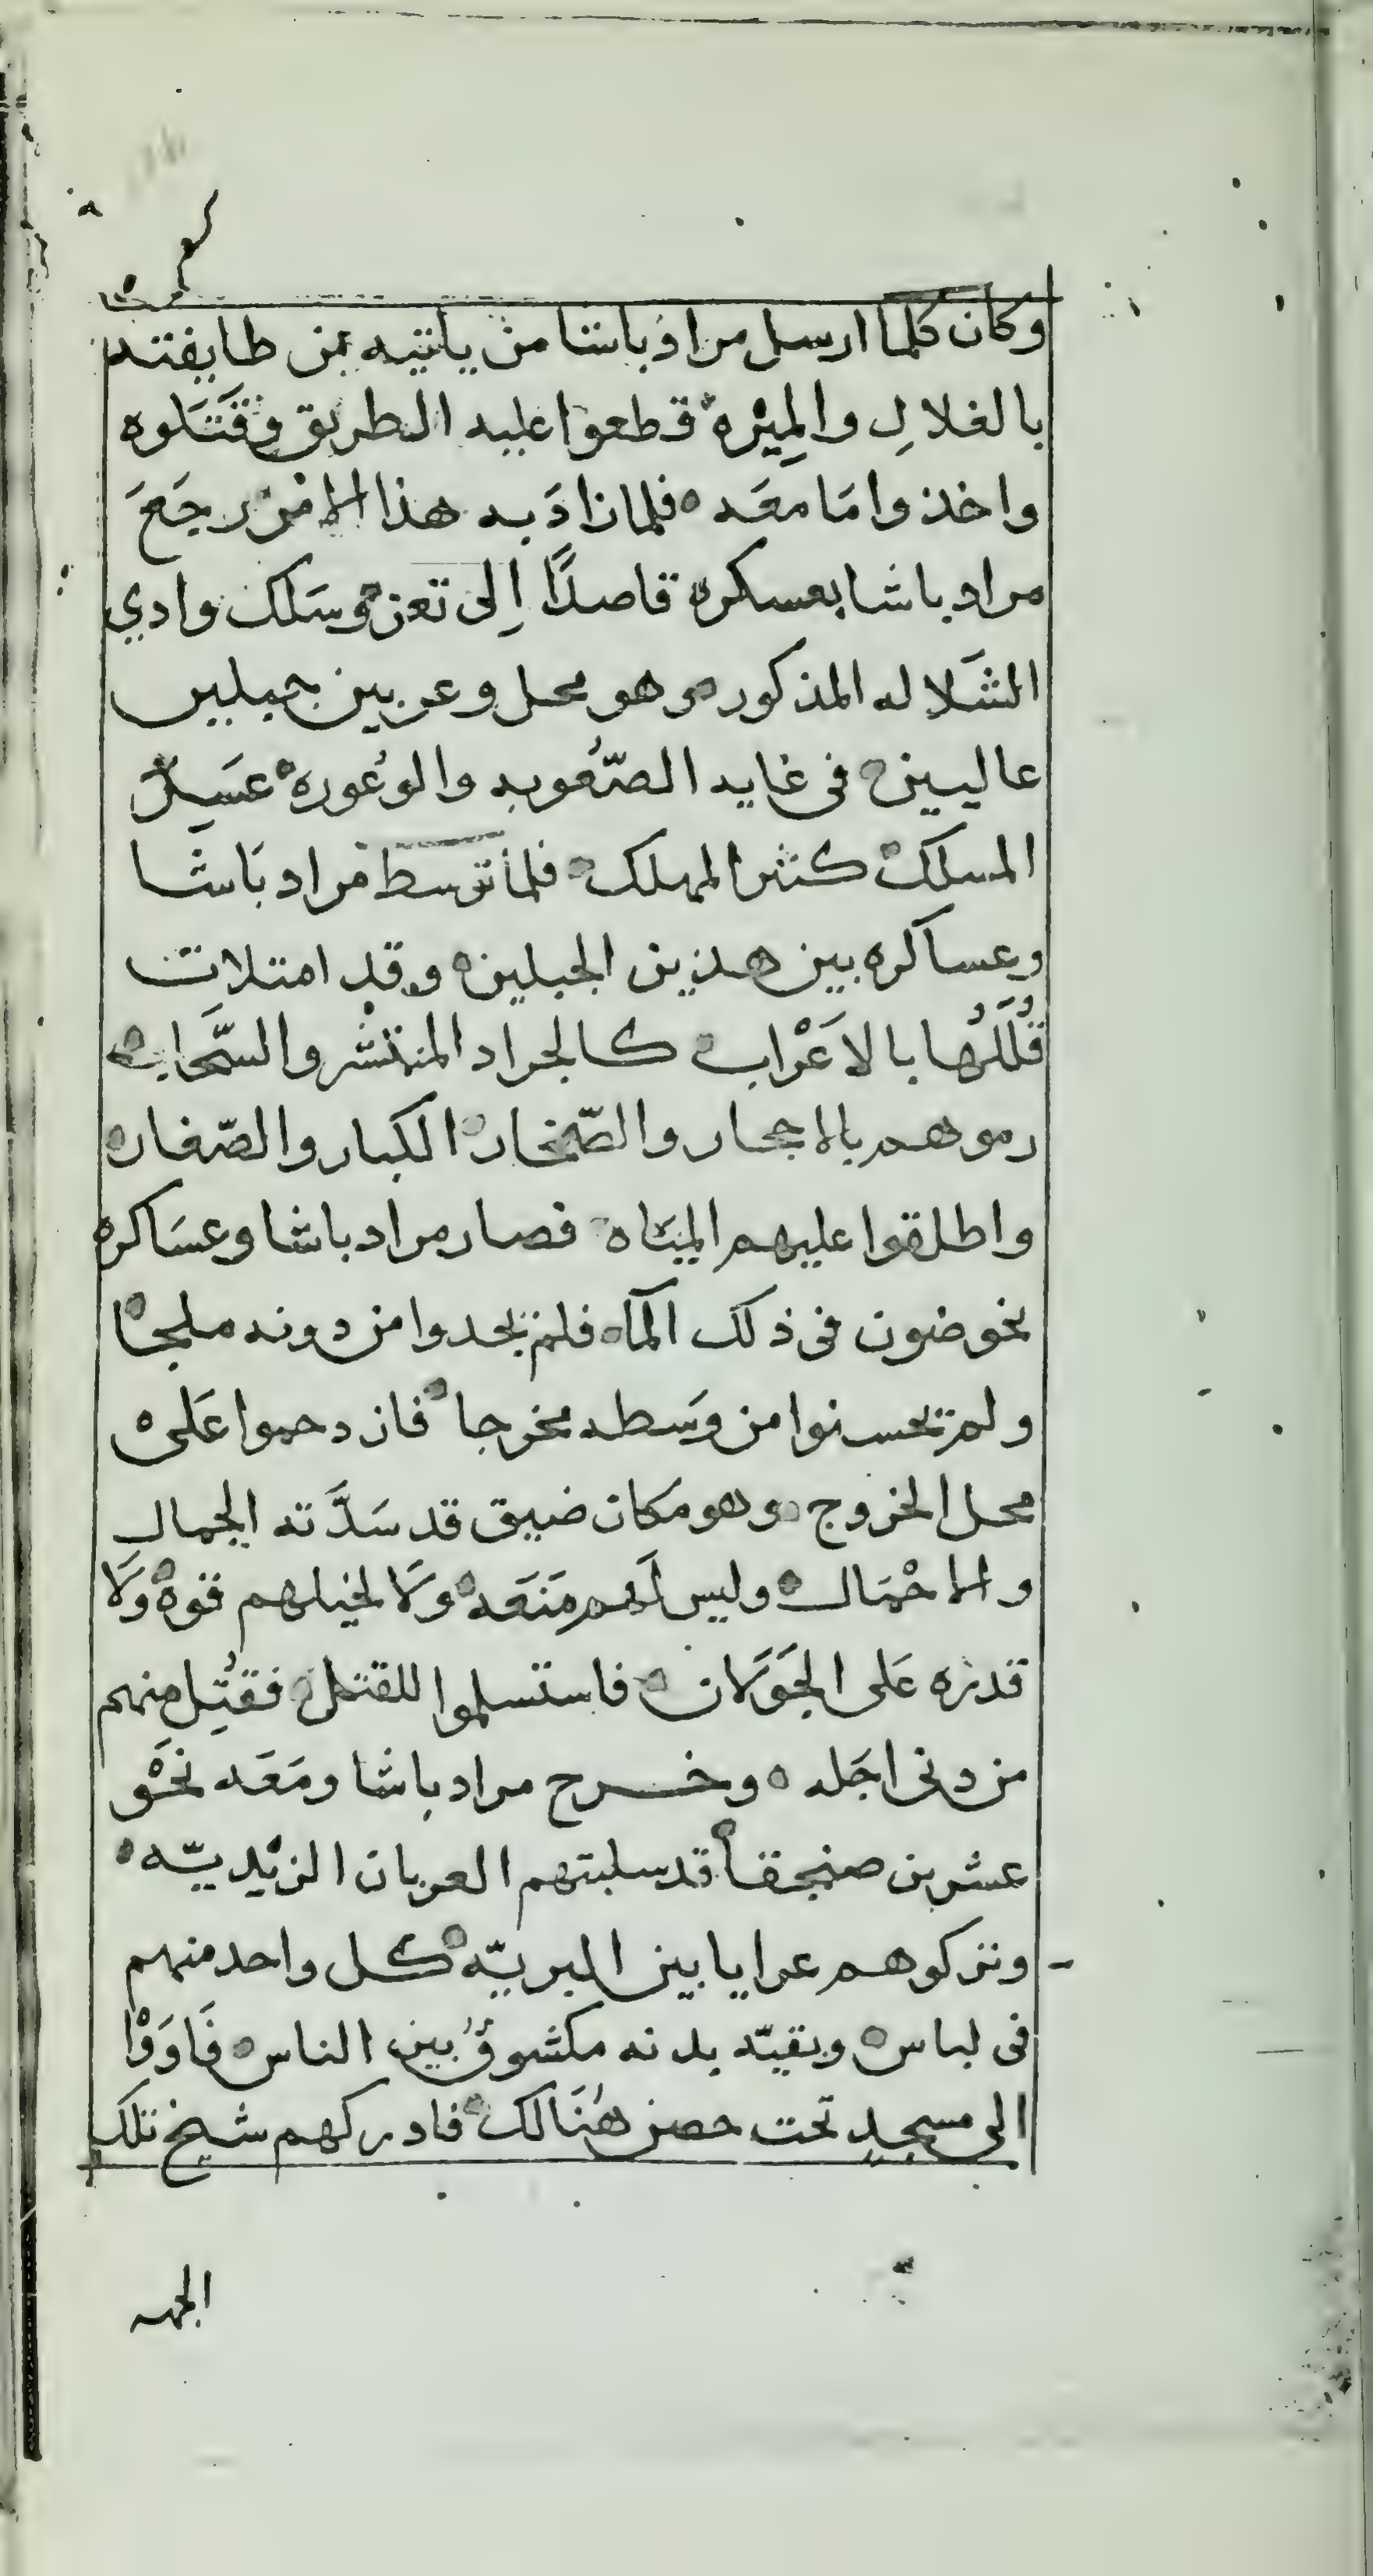 وكان كلما ارسل مراد باشا من ياتيه من طايفته
بالغلالِ والمِيْرة قطعوا عليه الطريق وقَتَلوه
واخذوا مَا معَه ه فلما زادَ به هذا الامر رجَعَ
مراد باشا بعسكره قاصدًا اِلى تعز وسَلك وادي
الشَلاله المذكور وهو محل وعر بين جبلين
عاليين في غايه الصّعُوبه والوُعوره عَسِر
المسلك كثير المهلك فلما توسط مراد بَاشا
وعساكره بين هذين الجبلين ه وقد امتلات
قُلَلُها بالاَعْراب كالجراد المنتشر والسَّحاب
رموهم بالاحجار والصّخار الكبار والصّغار ه
واطلقوا عليهم الميَاه فصار مراد باشا وعسَاكره
يخوضون في ذلك المآء فلم يجدوا من دونه ملجًا
ولم يحسنوا من وسَطه مخرجا فازدحموا عَلى
محل الخروج وهو مكان ضيق قد سَدَّته الجمال
والاحْمَال وليس لَهم مَنَعَه وَلا لخيلهم قوة وَلا
قدره عَلى الجَوَلان فاستسلموا للقتل فقُتِل منهم
من دنى اجَله ه وخرج مراد باشا ومَعَه نحَو
عشرين صنجقاً قد سلبتهم العربان الزيْديّه
وتركوهم عرايا بين البريّه كل واحد منهم
في لباس وبقيّه بدنه مكشوفٌ بين الناس فَاوَوْا
الى مسجدٍ تحت حصن هُنَالك فادركهم شيخ تلك
الجهه